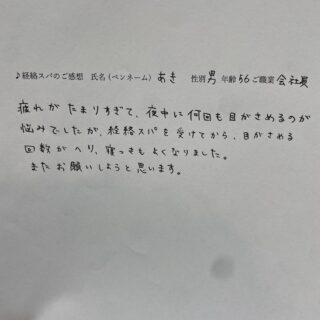 ♪経絡スパのご感想 氏名(ペンネーム) あき 性別 男 年齢 56 ご職業 会社員
疲れがたまりすぎて、夜中に何回も目がさめるのが
悩みでしたが、経絡スパを受けてから、目がさめる
回数がへり、寝つきもよくなりました。
またお願いしようと思います。